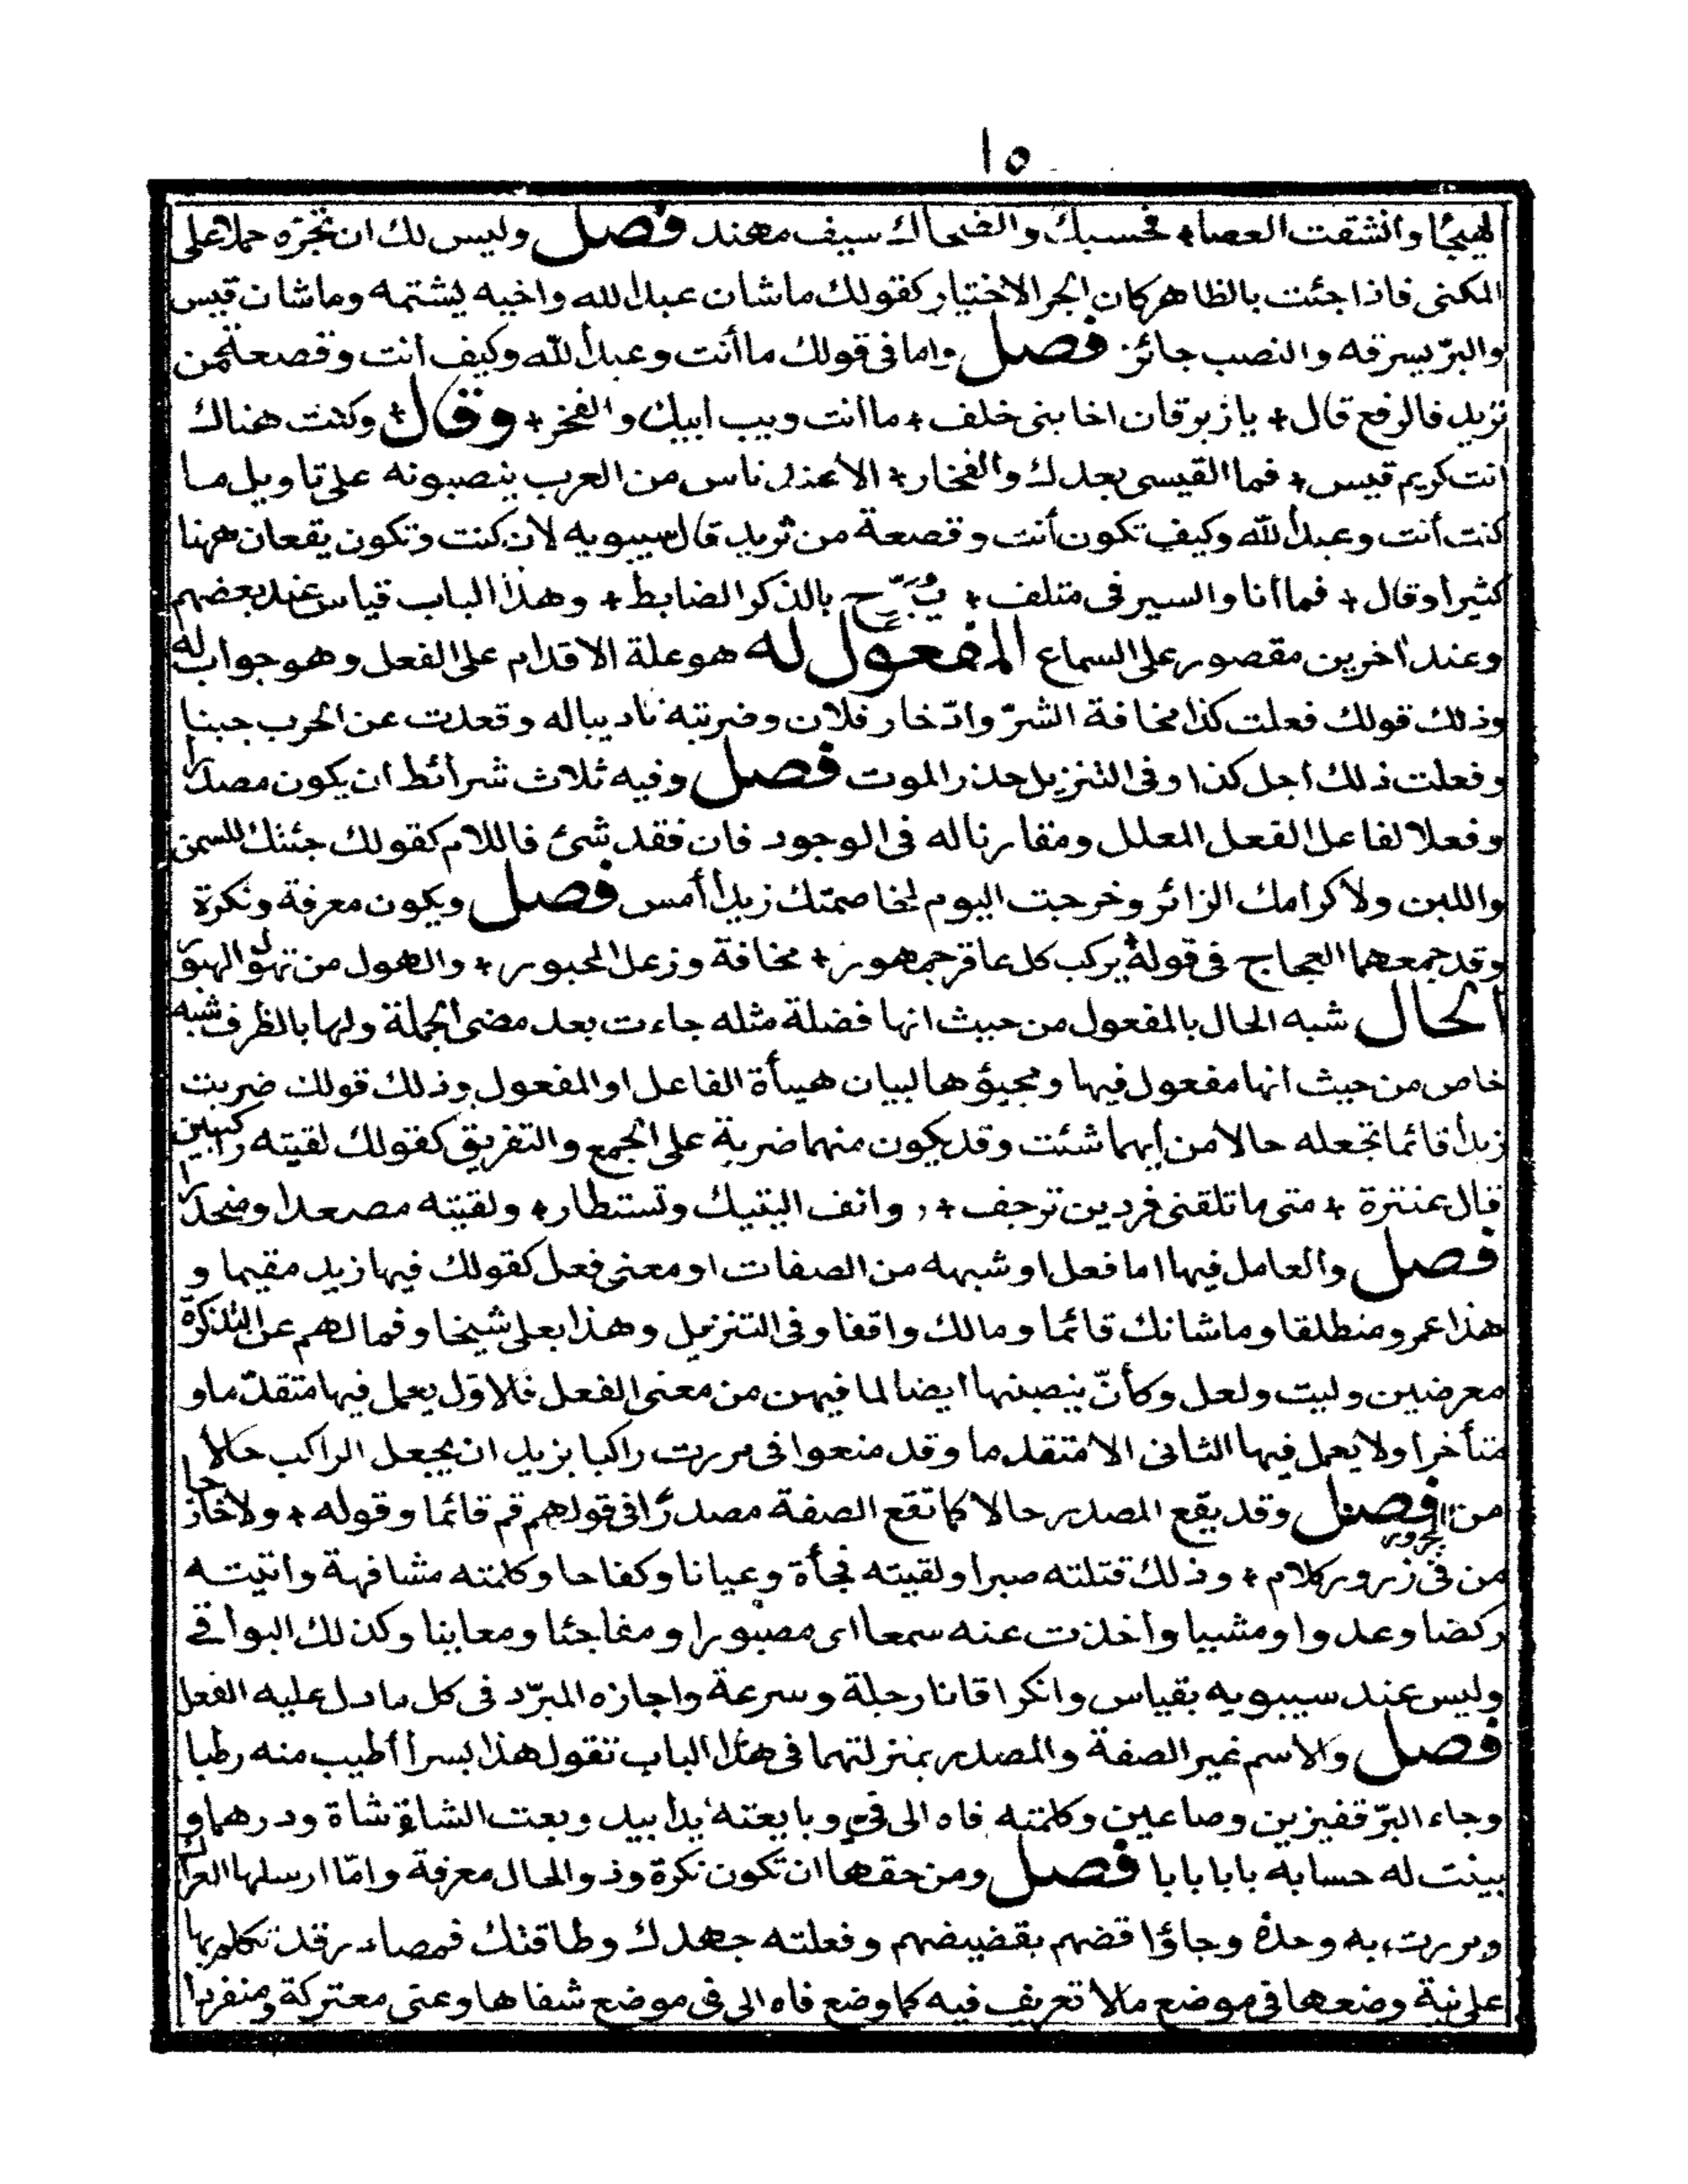 ١٥
الهيجا وانشقت العصا + فحسبك والضحاك سيف مهند فصل وليس لك ان تجره حملا على
المكنى فاذا جئت بالظاهر كان الجر الاختيار كقولك ما شان عبد الله واخيه يشتمه وما شان قيس
والبرّ يسرقه والنصب جائز. فصل واما فى قولك ما أنت وعبد الله وكيف انت وقصعة من
ثريد فالرفع قال + يا زبرقان اخا بنى خلف + ما انت ويب ابيك والفخر + وقال + وكنت هناك
انت كريم قيس + فما القيسى بعدك والفخار + الا عند ناس من العرب ينصبونه على تاويل ما
كنت أنت وعبد الله وكيف تكون أنت وقصعة من ثريد قال سيبويه لان كنت وتكون يقعان ههنا
كثيرا وقال + فما أنا والسير فى متلف + يُبَرِّح بالذكر الضابط + وهذا الباب قياس عند بعضهم
وعند اخرين مقصور على السماع المفعول له هو علة الاقدام على الفعل وهو جواب لمه
وذلك قولك فعلت كذا مخافة الشرّ وادّخار فلان وضربته تاديبا له وقعدت عن الحرب جبنا
وفعلت ذلك اجل كذا وفى التنزيل حذر الموت فصل وفيه ثلاث شرائط ان يكون مصدرا
وفعلا لفاعل الفعل المعلل ومقارنا له فى الوجود فان فقد شئ فاللام كقولك جئتك للسمن
واللبن ولاكرامك الزائر وخرجت اليوم لمخاصمتك زيدا أمس فصل ويكون معرفة ونكرة
وقد جمعهما العجاج فى قوله + يركب كل عاقر جمهور + مخافة وزعل المحبور + والهول من تهول الهبور
الحال شبه الحال بالمفعول من حيث انها فضلة مثله جاءت بعد مضى الجملة ولها بالظرف شبه
خاص من حيث انها مفعول فيها ومجيؤها لبيان هيأة الفاعل او المفعول وذلك قولك ضربت
زيدا قائما تجعله حالا من أيهما شئت وقد يكون منهما ضربة على الجمع والتفريق كقولك لقيته راكبين
قال عنترة + متى ما تلقنى فردين ترجف + روانف اليتيك وتستطار + ولقيته مصعدا ومنحدرا
فصل والعامل فيها اما فعل او شبهه من الصفات او معنى فعل كقولك فيها زيد مقيما و
هذا عمرو منطلقا وما شانك قائما وما لك واقفا وفى التنزيل وهذا بعلى شيخا وفما لهم عن التذكرة
معرضين وليت ولعل وكأنّ ينصبنها ايضا لما فيهن من معنى الفعل فالاوّل يعمل فيها متقدّما و
متأخرا ولا يعمل فيها الثانى الا متقدما وقد منعوا فى مررت راكبا بزيد ان يجعل الراكب حالا
من المجرور فصل وقد يقع المصدر حالا كما تقع الصفة مصدرًا فى قولهم قم قائما وقوله + ولا خارجا
من فىّ زور كلام + وذلك قتلته صبرا ولقيته فجأة وعيانا وكفاحا وكلمته مشافهة واتيته
ركضا وعدوا ومشيا واخذت عنه سمعا اى مصبورا ومفاجئا ومعاينا وكذلك البواقى
وليس عند سيبويه بقياس وانكر اتانا رجلة وسرعة واجازه المبرّد فى كل ما دل عليه الفعل
فصل والاسم غير الصفة والمصدر بمنزلتهما فى هذا الباب تقول هذا بسرا أطيب منه رطبا
وجاء البرّ قفيزين وصاعين وكلمته فاه الى فىّ وبايعته يدا بيد وبعت الشاة شاة ودرهما و
بينت له حسابه بابا بابا فصل ومن حقها ان تكون نكرة وذو الحال معرفة وامّا ارسلها العراك
ومررت به وحده وجاؤا قضهم بقضيضهم وفعلته جهدك وطاقتك فمصادر قد تكلم بها
على نية وضعها فى موضع ما لا تعريف فيه كما وضع فاه الى فى موضع شفاها وعنى معتركة ومنفردا